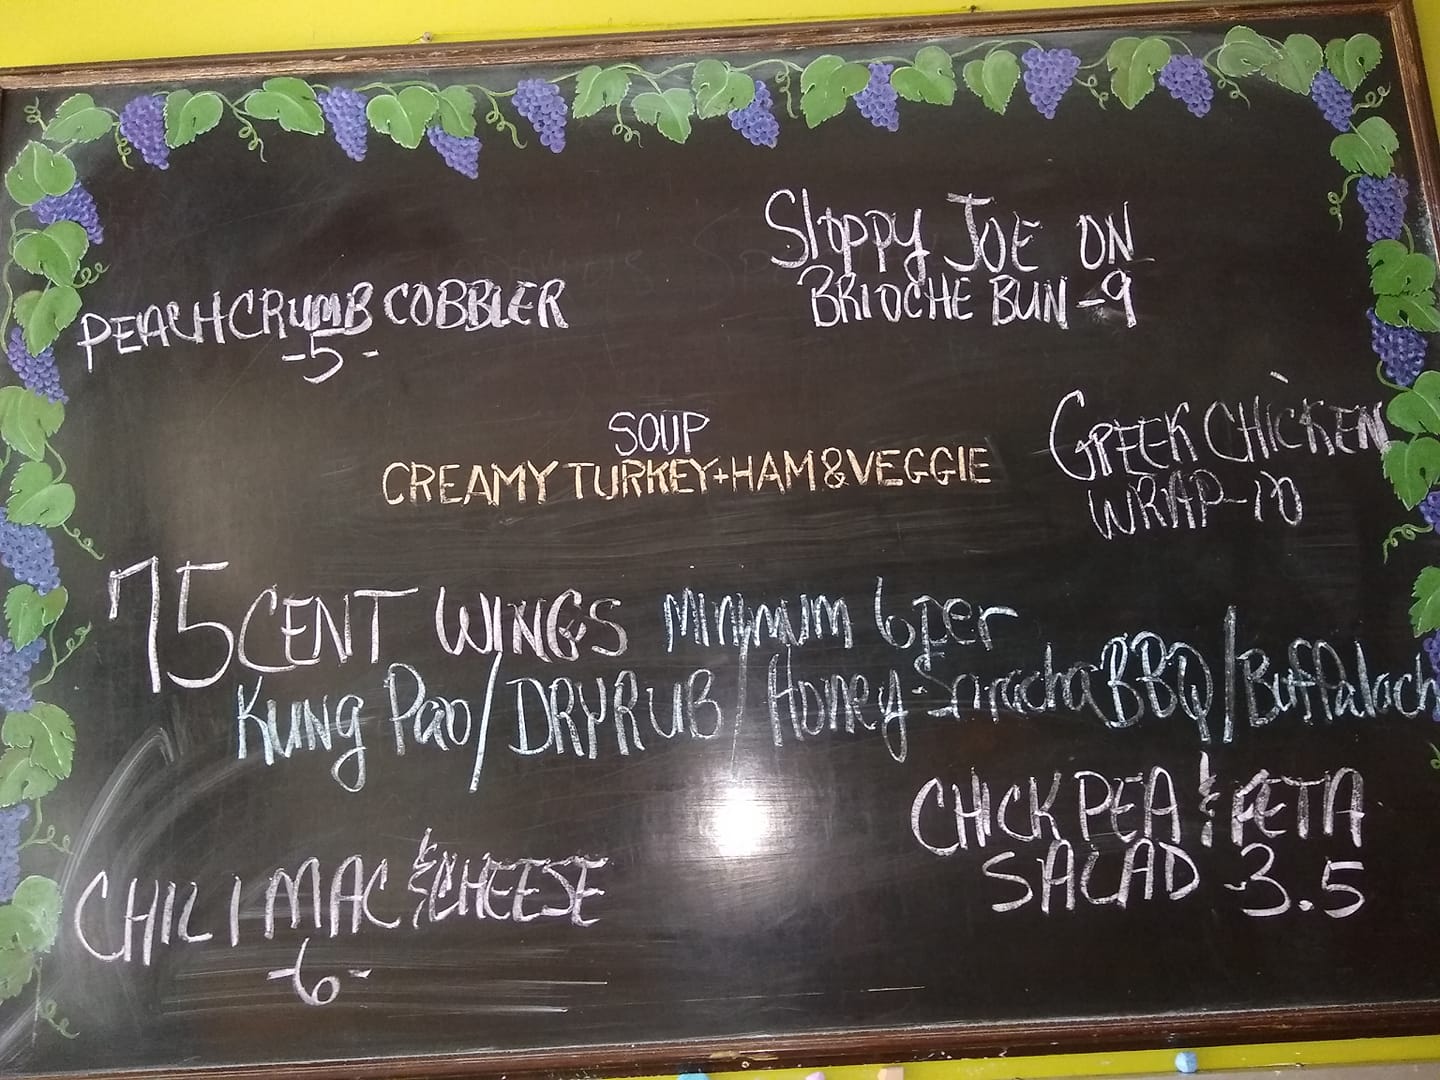 Sloppy JOE ON
BRIOCHE BUN -9
PEACH CRUMB COBBLER
-5-
SOUP
CREAMY TURKEY+HAM&VEGGIE
GREEK CHICKEN
WRAP-10
75 CENT WINGS Minimum 6 per
KUNG Pao/DRY RUB/Honey-Sriracha BBQ/Buffalach
CHICK PEA & FETA
SALAD -3.5
CHILI MAC & CHEESE
-6-